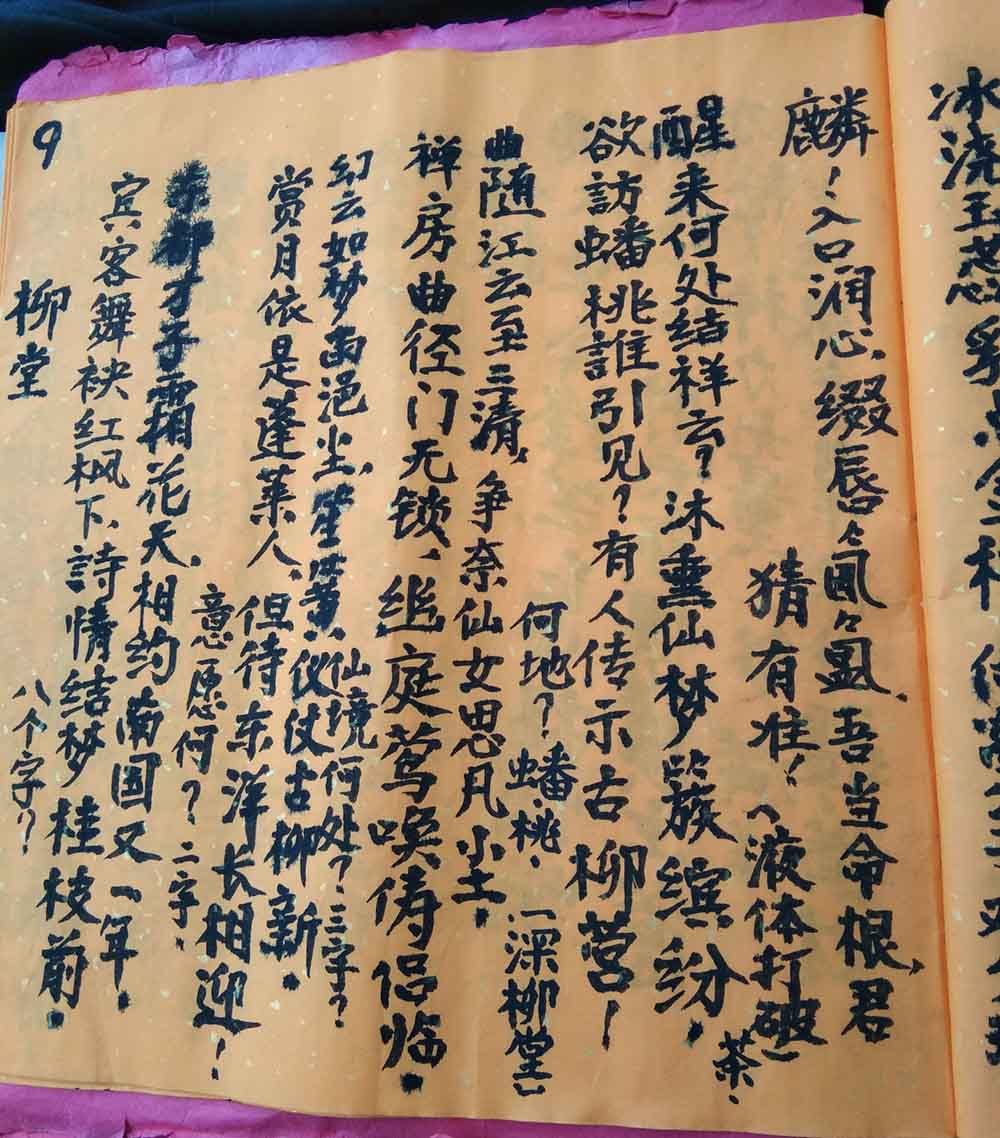 冰浇玉葱乳点金
麟!入口润心,缀唇氤々氲,吾当命根,君
猜有准!(液体打破)茶.
醒来何处结祥云?沐熏仙梦簇缤纷.
欲訪蟠桃誰引见?有人传示古柳营—
何地?蟠桃.(深柳堂)
曲随江云至三清,争奈仙女思凡尘.
禅房曲径门无锁,庭莺唤俦侣临.
幻云如梦雨浥尘,笙箫仪仗古柳新.
仙境何处?三字?
赏月依是蓬莱人,但待东洋长相迎!
意愿何?二字.
才子霜花天,相约南国又一年.
宾客舞袂红枫下,詩情结梦桂枝前.
八个字?
柳堂
9